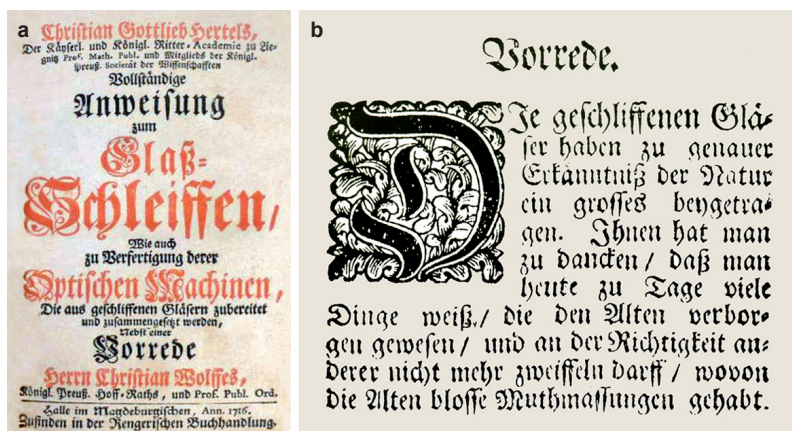 a
Christian Gottlieb Hertels,
Der Käyserl. und Königl. Ritter-Academie zu Lie-
gnitz Prof. Math. Publ. und Mitglieds der Königl.
Preuß. Societät der Wissenschafften
Vollständige
Anweisung
zum
Glaß-
Schleiffen /
Wie auch
zu Verfertigung derer
Optischen Machinen,
Die aus geschliffenen Gläsern zubereitet
und zusammengesetzt werden,
Nebst einer
Vorrede
Herrn Christian Wolffes,
Königl. Preuß. Hoff-Raths, und Prof. Publ. Ord.
Halle im Magdeburgischen, Ann. 1716.
Zufinden in der Rengerischen Buchhandlung.
b
Vorrede.
DJe geschliffenen Glä-
ser haben zu genauer
Erkänntniß der Natur
ein grosses beygetra-
gen. Ihnen hat man
zu dancken / daß man
heute zu Tage viele
Dinge weiß / die den Alten verbor-
gen gewesen / und an der Richtigkeit an-
derer nicht mehr zweiffeln darff / wovon
die Alten blosse Muthmassungen gehabt.